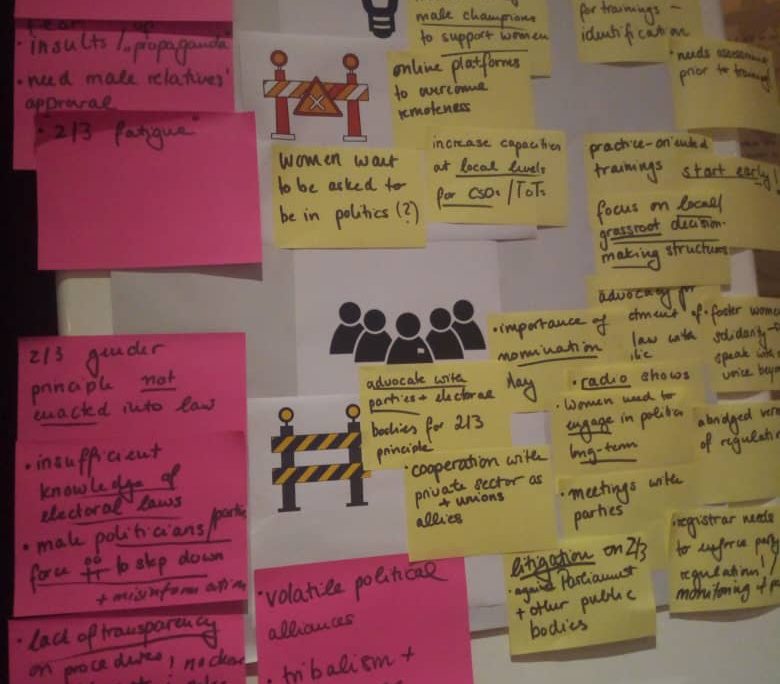 · insults / propaganda
· need male relatives'
approval
· 2/3 fatigue
2/3 gender
principle not
enacted into law
· insufficient
knowledge of
electoral laws
· male politicians/
force to step down
+ misinform
· lack of transparency
on procedures,
· volatile political
alliances
· tribalism +
make champions
to support women
online platforms
to overcome
remoteness
Women wait
to be asked to
be in politics (?)
increase capacities
at local levels
for CSOs / ToTs
for trainings –
identification
· needs assessment
prior to
practice-oriented
trainings start early!
focus on local/
grassroot decision-
making structures
advocacy for
law with
· importance of
nomination
day
· foster
solidarity –
speak with
voice
advocate with
parties + electoral
bodies for 2/3
principle
· radio shows
· Women need to
engage in
long-term
abridged
of
· cooperation with
private sector as
+ unions
allies
· meetings with
parties
litigation on 2/3
· against Parliament
+ other public
bodies
· registrar needs
to enforce
regulation!
monitoring +